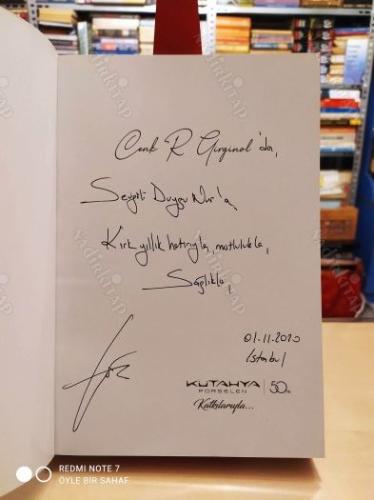 Cenk R Girginol'dan,
Sevgili Duygu Nur'a,
Kırk yıllık hatırıyla, mutlulukla,
Sağlıkla,
01.11.2020
İstanbul
KÜTAHYA PORSELEN | 50.
Katkılarıyla...
nadirkitap
REDMI NOTE 7
ÖYLE BİR SAHAF